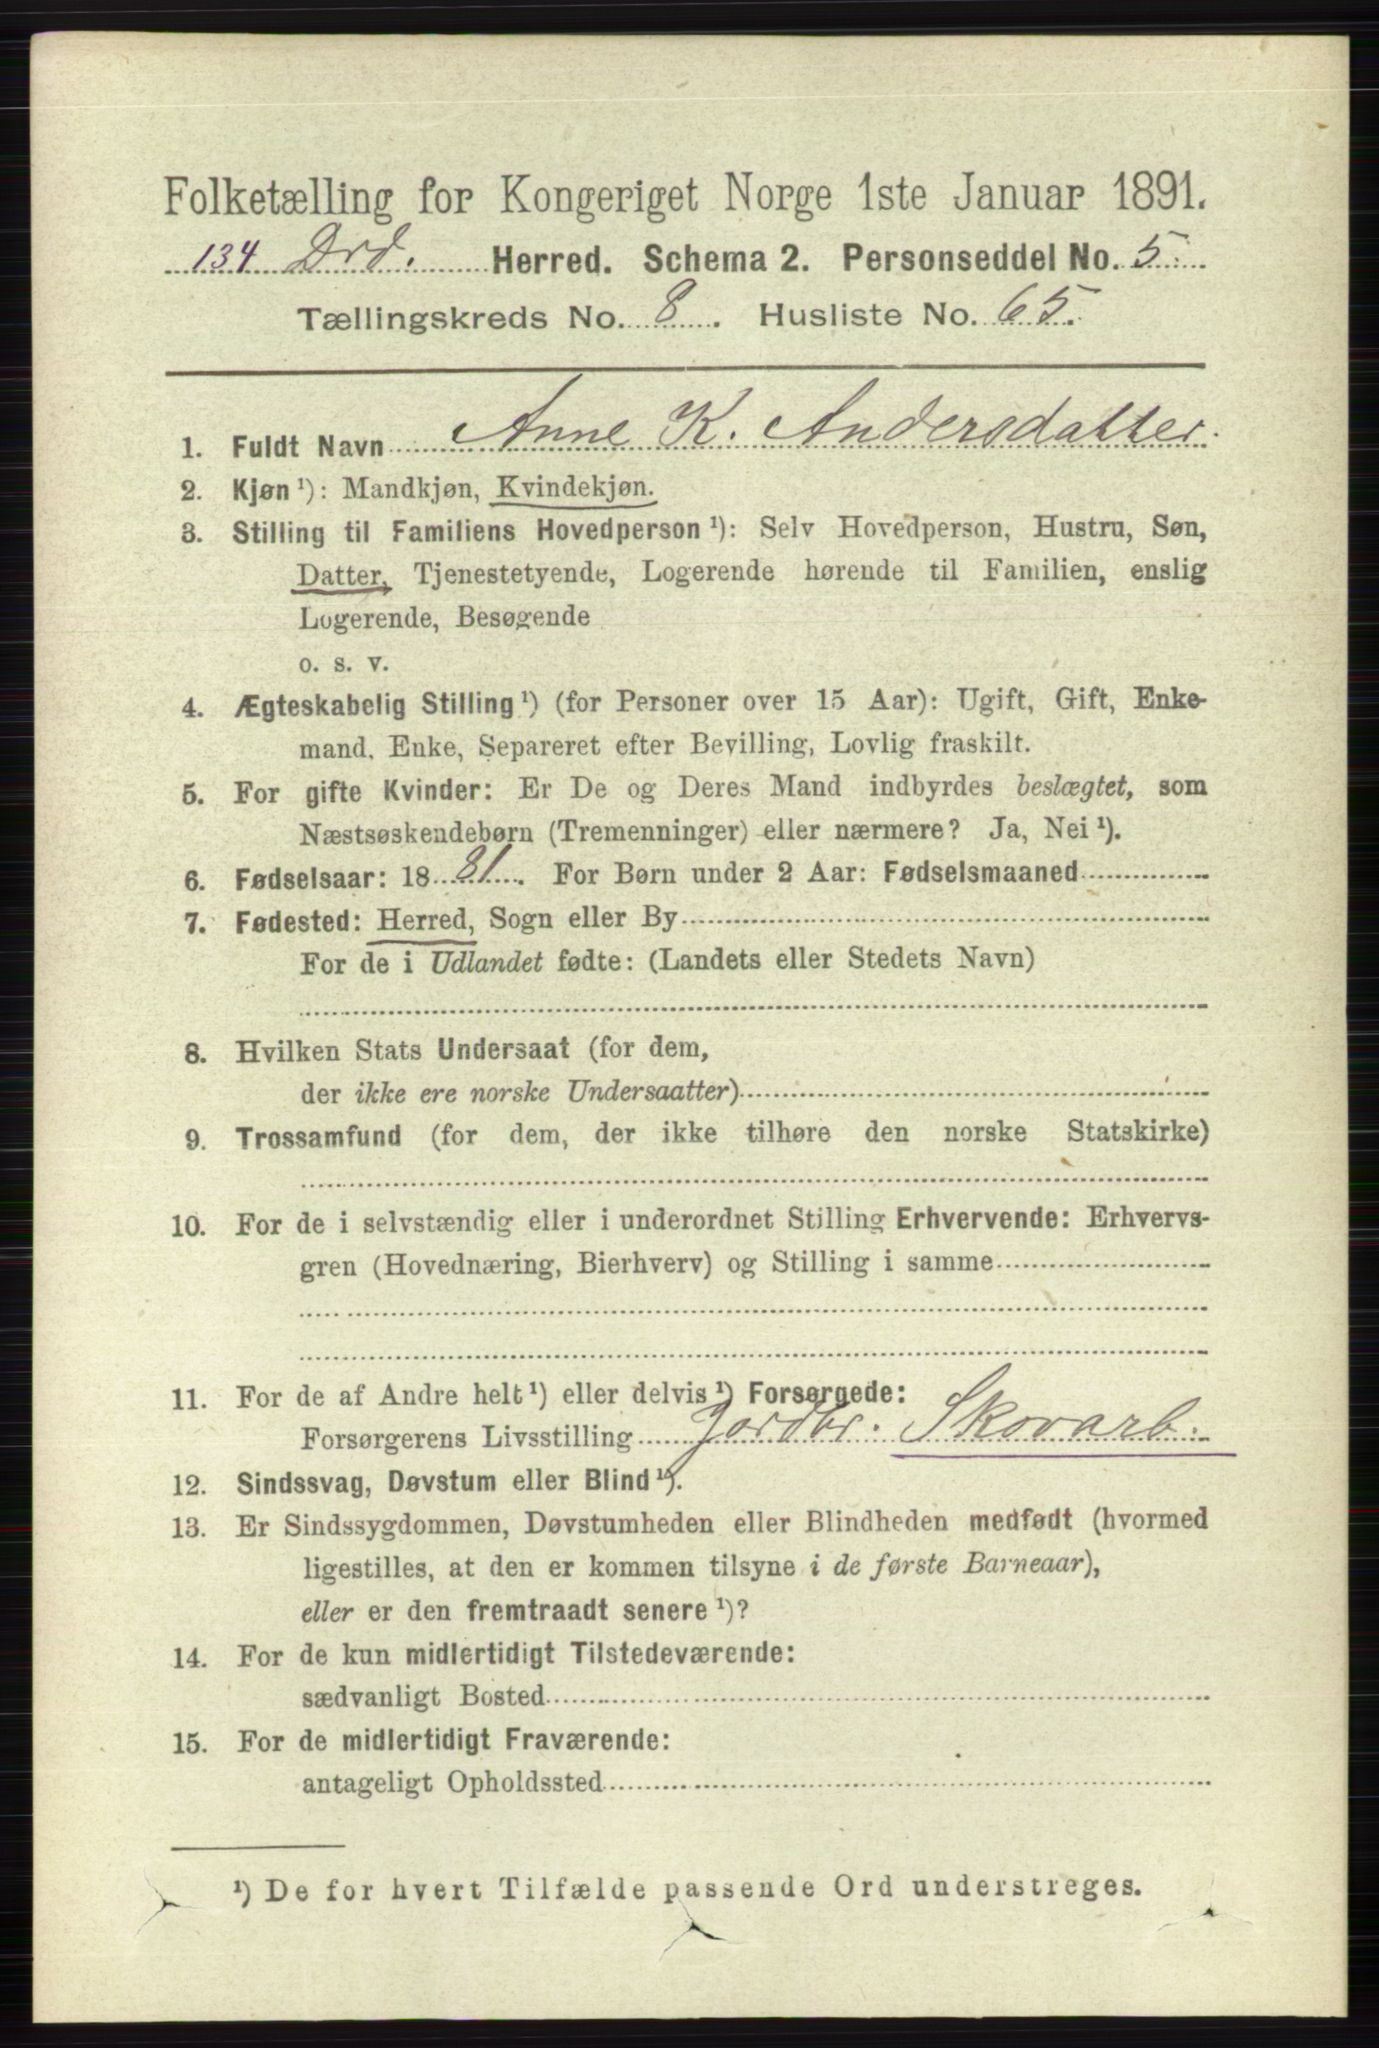 Folketælling for Kongeriget Norge 1ste Januar 1891.
134 Drd. Herred. Schema 2. Personseddel No. 5.
Tællingskreds No. 8. Husliste No. 65.
1. Fuldt Navn Anne K. Andersdatter.
2. Kjøn ¹): Mandkjøn, Kvindekjøn.
3. Stilling til Familiens Hovedperson ¹): Selv Hovedperson, Hustru, Søn,
Datter, Tjenestetyende, Logerende hørende til Familien, enslig
Logerende, Besøgende
o. s. v.
4. Ægteskabelig Stilling ¹) (for Personer over 15 Aar): Ugift, Gift, Enke-
mand, Enke, Separeret efter Bevilling, Lovlig fraskilt.
5. For gifte Kvinder: Er De og Deres Mand indbyrdes beslægtet, som
Næstsøskendebørn (Tremenninger) eller nærmere? Ja, Nei ¹).
6. Fødselsaar: 1881. For Børn under 2 Aar: Fødselsmaaned
7. Fødested: Herred, Sogn eller By
For de i Udlandet fødte: (Landets eller Stedets Navn)
8. Hvilken Stats Undersaat (for dem,
der ikke ere norske Undersaatter)
9. Trossamfund (for dem, der ikke tilhøre den norske Statskirke)
10. For de i selvstændig eller i underordnet Stilling Erhvervende: Erhvervs-
gren (Hovednæring, Bierhverv) og Stilling i samme
11. For de af Andre helt ¹) eller delvis ¹) Forsørgede:
Forsørgerens Livsstilling Jordbr. Skovarb.
12. Sindssvag, Døvstum eller Blind ¹).
13. Er Sindssygdommen, Døvstumheden eller Blindheden medfødt (hvormed
ligestilles, at den er kommen tilsyne i de første Barneaar),
eller er den fremtraadt senere ¹)?
14. For de kun midlertidigt Tilstedeværende:
sædvanligt Bosted
15. For de midlertidigt Fraværende:
antageligt Opholdssted
¹) De for hvert Tilfælde passende Ord understreges.